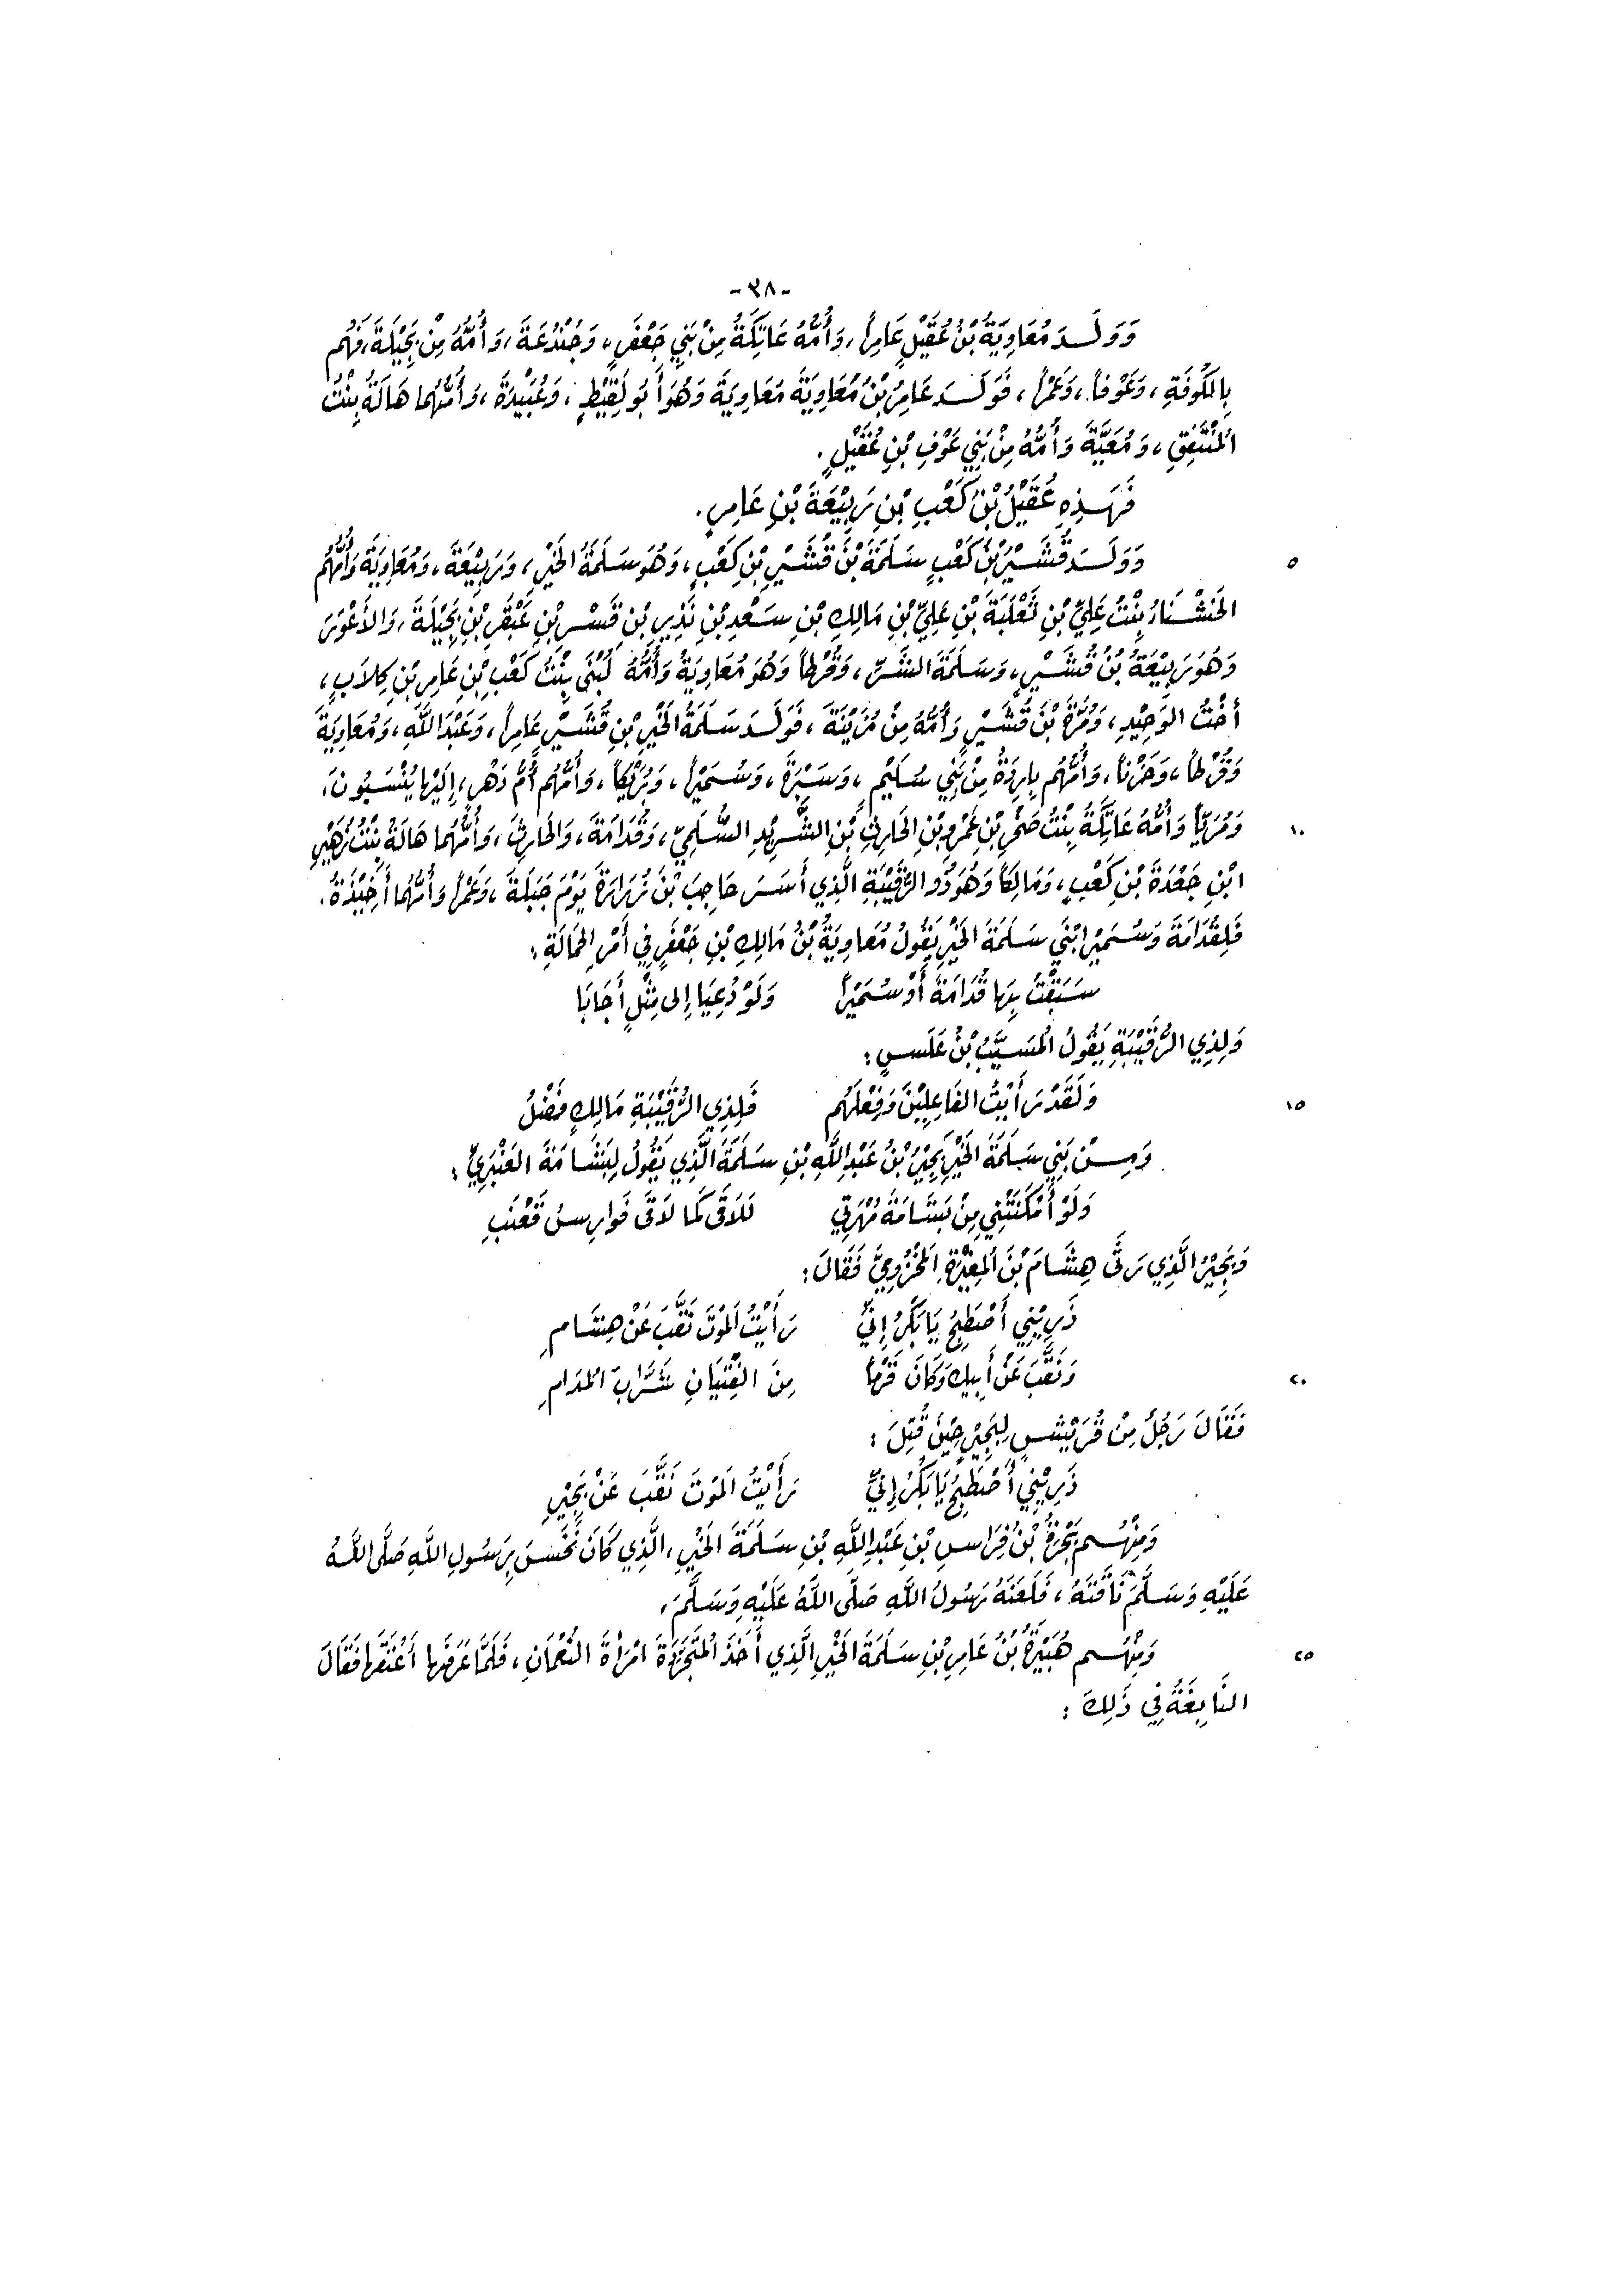 -٣٨-
وَوَلَدَ مُعَاوِيَةُ بْنُ عُقَيْلٍ عَامِراً، وَأُمُّهُ عَاتِكَةُ مِنْ بَنِي جَعْفَرٍ، وَجُنْدُعَةَ، وَأُمُّهُ مِنْ بَجِيْلَةَ، فَهُم
بِالكُوفَةِ، وَعَوْفاً، وَعَمْراً، فَوَلَدَ عَامِرُ بْنُ مُعَاوِيَةَ مُعَاوِيَةَ وَهُوَ أَبُو لَقِيْطٍ، وَعُبَيْدَةَ، وَأُمُّهُما هَالَةُ بِنْتُ
المُنْتَفِقِ، وَمُعَيَّةَ وَأُمُّهُ مِنْ بَنِي عَوْفِ بْنِ عُقَيْلٍ.
فَهَذِهِ عُقَيْلُ بْنُ كَعْبِ بْنِ رَبِيْعَةَ بْنِ عَامِرٍ.
٥ وَوَلَدَ قُشَيْرُ بْنُ كَعْبٍ سَلَمَةَ بْنَ قُشَيْرِ بْنِ كَعْبٍ، وَهُوَ سَلَمَةُ الخَيْرِ، وَرَبِيْعَةَ، وَمُعَاوِيَةَ وَأُمُّهُم
الخَشْنَاءُ بِنْتُ عَلِيِّ بْنِ ثَعْلَبَةَ بْنِ عَلِيِّ بْنِ مَالِكِ بْنِ سَعْدِ بْنِ نَذِيرِ بْنِ قَسْرِ بْنِ عَبْقَرِ بْنِ بَجِيْلَةَ، وَالأَعْوَرَ
وَهُوَ رَبِيْعَةُ بْنُ قُشَيْرٍ، وَسَلَمَةَ الشَّرِّ، وَقُرْطاً وَهُوَ مُعَاوِيَةُ وَأُمُّهُ لُبْنَى بِنْتُ كَعْبِ بْنِ عَامِرِ بْنِ كِلَابٍ،
أُخْتُ الوَحِيْدِ، وَمُرَّةَ بْنَ قُشَيْرٍ وَأُمُّهُ مِنْ مُزَيْنَةَ، فَوَلَدَ سَلَمَةُ الخَيْرِ بْنِ قُشَيْرٍ عَامِراً، وَعَبْدَ اللَّهِ، وَمُعَاوِيَةَ
وَقُرْطاً، وَحَزْناً، وَأُمُّهُم بِارِدَةُ مِنْ بَنِي سُلَيْمٍ، وَسَبْرَةَ، وَسُمَيْراً، وَبُرَيْكاً، وَأُمُّهُم أُمُّ دَهْرٍ، إِلَيْهَا يُنْسَبُونَ،
١٠ وَمُرَيّاً وَأُمُّهُ عَاتِكَةُ بِنْتُ صَخْرِ بْنِ عَمْرِو بْنِ الحَارِثِ بْنِ الشَّرِيْدِ السُّلَمِيِّ، وَقُدَامَةَ، وَالحَارِثَ، وَأُمُّهُمَا هَالَةُ بِنْتُ زُهَيْرِ
ابْنِ جَعْدَةَ بْنِ كَعْبٍ، وَمَالِكاً وَهُوَ ذُو الرُّقَيْبَةِ الَّذِي أَسَرَ حَاجِبَ بْنَ زُرَارَةَ يَوْمَ جَبَلَةَ، وَعَمْراً وَأُمُّهُمَا أَخِيْذَةُ.
فَلِقُدَامَةَ وَسُمَيْرٍ ابْنَي سَلَمَةَ الخَيْرِ يَقُولُ مُعَاوِيَةُ بْنُ مَالِكِ بْنِ جَعْفَرٍ فِي أَمْرِ الحَمَالَةِ:
سَبَقْتُ بِهَا قُدَامَةَ أَوْ سُمَيْراً وَلَوْ دُعِيَا إِلى مِثْلٍ أَجَابَا
وَلِذِي الرُّقَيْبَةِ يَقُولُ المُسَيَّبُ بْنُ عَلَسٍ:
١٥ وَلَقَدْ رَأَيْتُ الفَاعِلِيْنَ وَفِعْلَهُم فَلِذِي الرُّقَيْبَةِ مَالِكٍ فَضْلُ
وَمِنْ بَنِي سَلَمَةَ الخَيْرِ بَحِيْرُ بْنُ عَبْدِ اللَّهِ بْنِ سَلَمَةَ الَّذِي يَقُولُ لِبَشَّامَةَ العَنْبَرِيِّ:
وَلَوْ أَمْكَنَتْنِي مِنْ بَشَّامَةَ مُهْرَتِي لَلَاقَى كَمَا لَاقَى فَوَارِسُ قَعْنَبِ
وَبَحِيْرُ الَّذِي رَثَّى هِشَامَ بْنَ المُغِيْرَةِ المَخْزُومِيَّ فَقَالَ:
ذَرِيْنِي أَصْطَبِحْ يَا بَكْرُ إِنِّي رَأَيْتُ المَوْتَ نَقَّبَ عَنْ هِشَامِ
٢٠ وَنَقَّبَ عَنْ أَبِيكِ وَكَانَ قَرْماً مِنَ الفِتْيَانِ شَرَّابَ المُدَامِ
فَقَالَ رَجُلٌ مِنْ قُرَيْشٍ لِبَحِيْرٍ حِيْنَ قُتِلَ:
ذَرِيْنِي أَصْطَبِحْ يَا بَكْرُ إِنِّي رَأَيْتُ المَوْتَ نَقَّبَ عَنْ بَحِيْرِ
وَمِنْهُم بَحْرَةُ بْنُ فِرَاسِ بْنِ عَبْدِ اللَّهِ بْنِ سَلَمَةَ الخَيْرِ، الَّذِي كَانَ نَخَسَ بِرَسُولِ اللَّهِ صَلَّى اللَّهُ
عَلَيْهِ وَسَلَّمَ نَاقَتَهُ، فَلَعَنَهُ رَسُولُ اللَّهِ صَلَّى اللَّهُ عَلَيْهِ وَسَلَّمَ.
٢٥ وَمِنْهُم هُبَيْرَةُ بْنُ عَامِرِ بْنِ سَلَمَةَ الخَيْرِ الَّذِي أَخَذَ المُتَجَرِّدَةَ امْرَأَةَ النُّعْمَانِ، فَلَمَّا عَرَفَهَا أَعْتَقَهَا فَقَالَ
النَّابِغَةُ فِي ذَلِكَ: